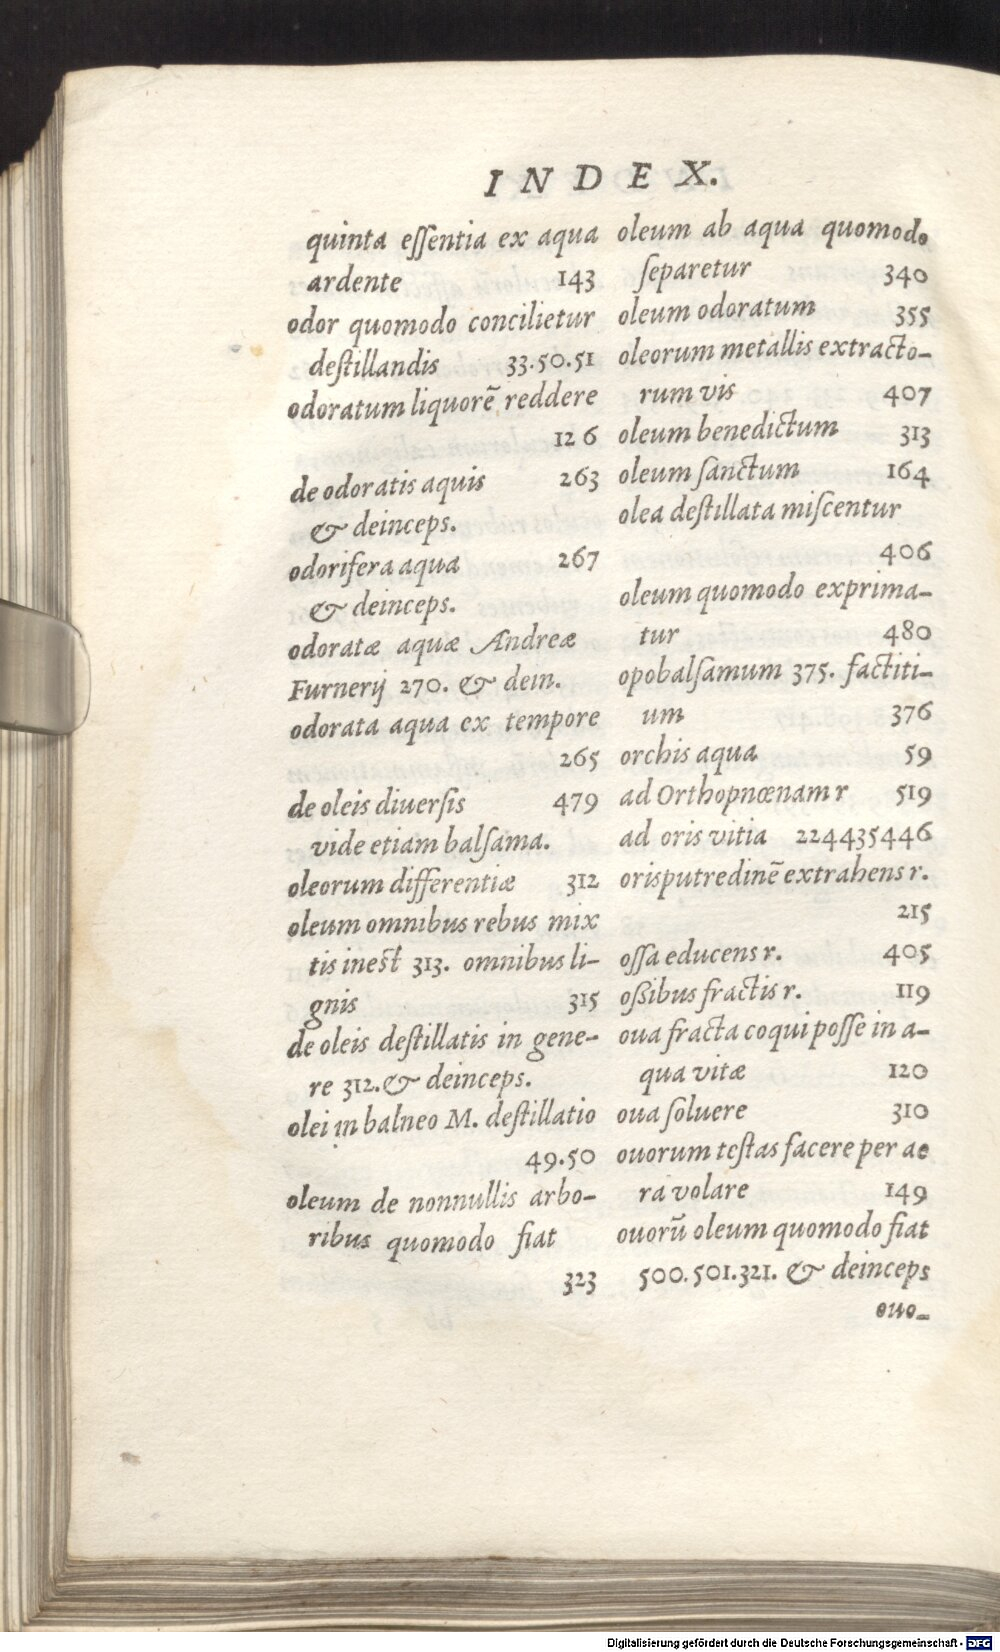 INDEX.
quinta eſſentia ex aqua
ardente 143
odor quomodo concilietur
deſtillandis 33.50.51
odoratum liquorē reddere
126
de odoratis aquis 263
& deinceps.
odorifera aqua 267
& deinceps.
odoratæ aquæ Andreæ
Furnerij 270. & dein.
odorata aqua ex tempore
265
de oleis diuerſis 479
vide etiam balſama.
oleorum differentiæ 312
oleum omnibus rebus mix
tis ineſt 313. omnibus li-
gnis 315
de oleis deſtillatis in gene-
re 312. & deinceps.
olei in balneo M. deſtillatio
49.50
oleum de nonnullis arbo-
ribus quomodo fiat
323
oleum ab aqua quomodo
ſeparetur 340
oleum odoratum 355
oleorum metallis extracto-
rum vis 407
oleum benedictum 313
oleum ſanctum 164
olea deſtillata miſcentur
406
oleum quomodo exprima-
tur 480
opobalſamum 375. factiti-
um 376
orchis aqua 59
ad Orthopnœnam r 519
ad oris vitia 224435446
oris putredinē extrahens r.
215
oſſa educens r. 405
oßibus fractis r. 119
oua fracta coqui poſſe in a-
qua vitæ 120
oua ſoluere 310
ouorum teſtas facere per ae
ra volare 149
ouorū oleum quomodo fiat
500.501.321. & deinceps
ouo-
Digitalisierung gefördert durch die Deutsche Forschungsgemeinschaft - DFG